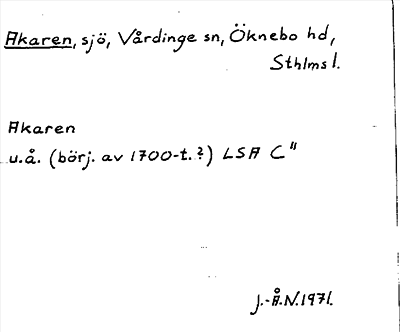 Akaren, sjö, Vårdinge sn, Öknebo hd,
Sthlms l.
Akaren
u.å. (börj. av 1700-t.?) LSA C"
J.-Å.N.1971.